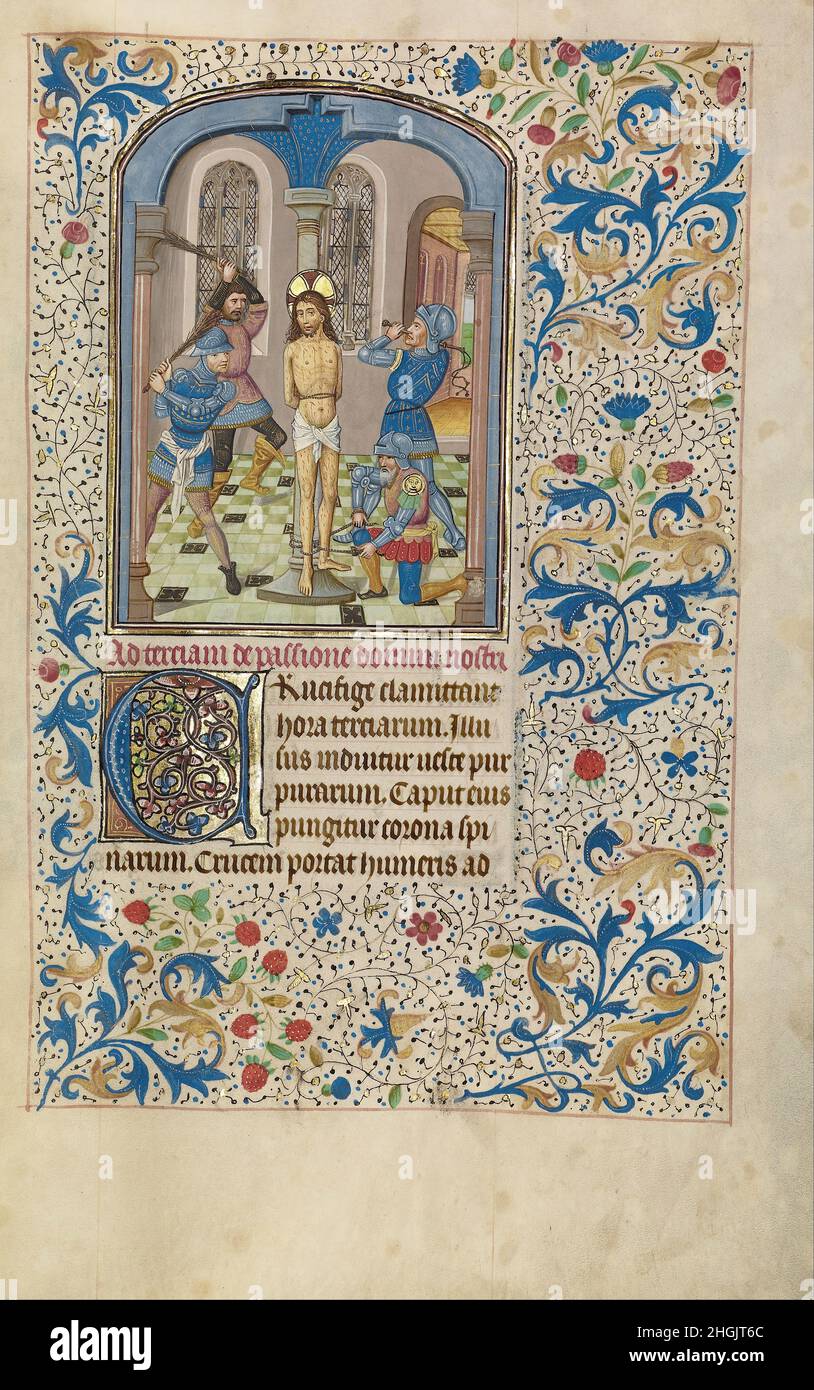 Ad terciam de passione domini nostri
CRucifige clamittent
hora terciarum. Illu
sus induitur veste pur
purarum. Caput eius
pungitur corona spi
narum. Crucem portat humeris ad
alamy
Image ID: 2HGJT6C
www.alamy.com